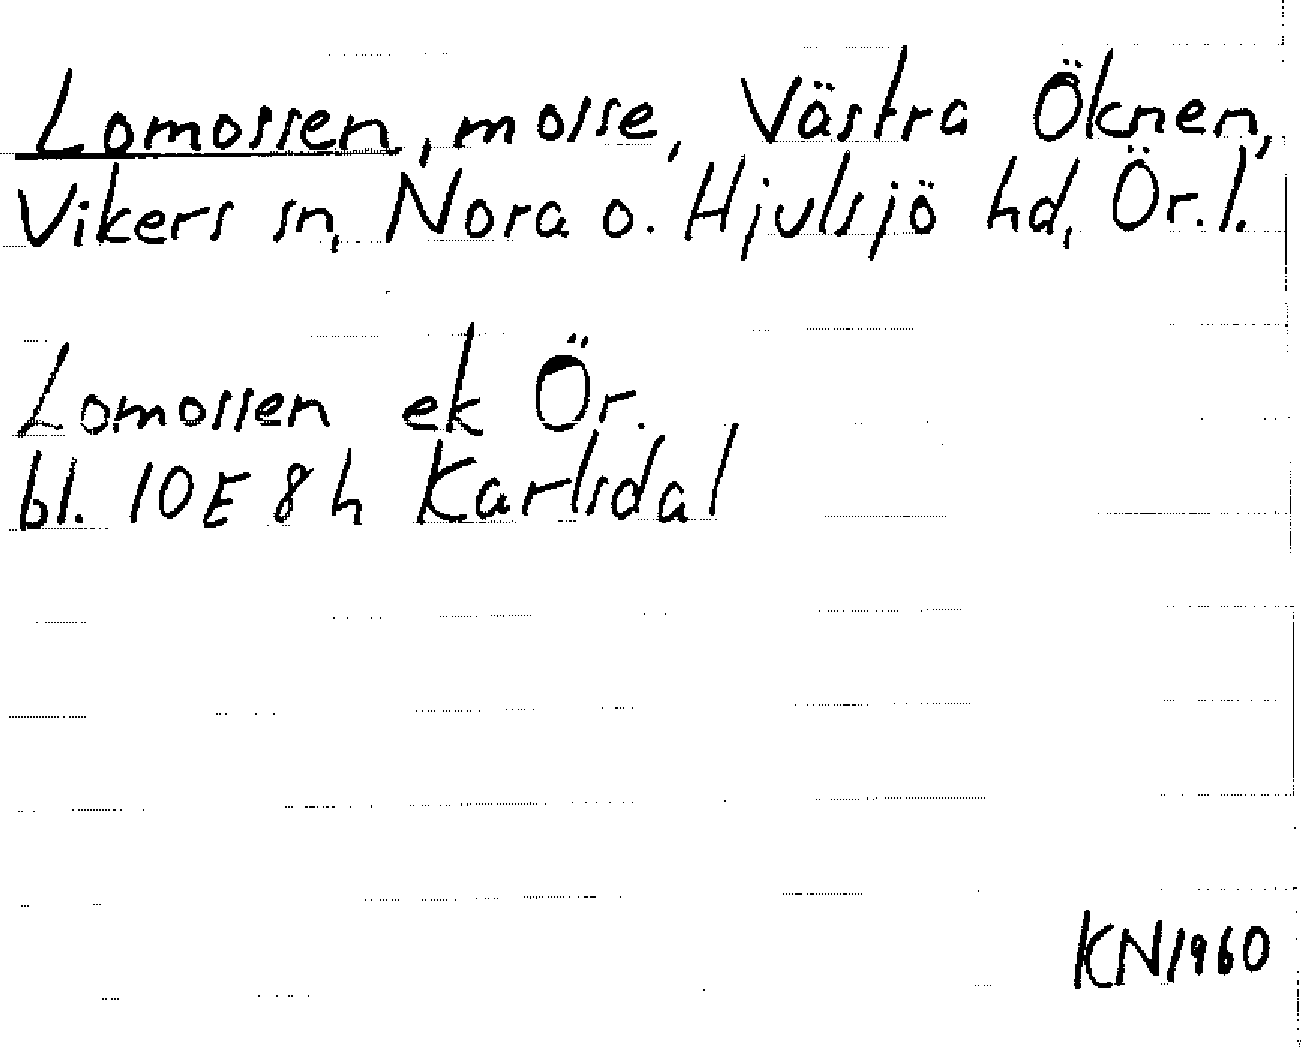 Lomossen, mosse, Västra Öknen,
Vikers sn, Nora o. Hjulsjö hd, Ör.l.
Lomossen ek Ör.
bl. 10E 8h Karlsdal
KN1960